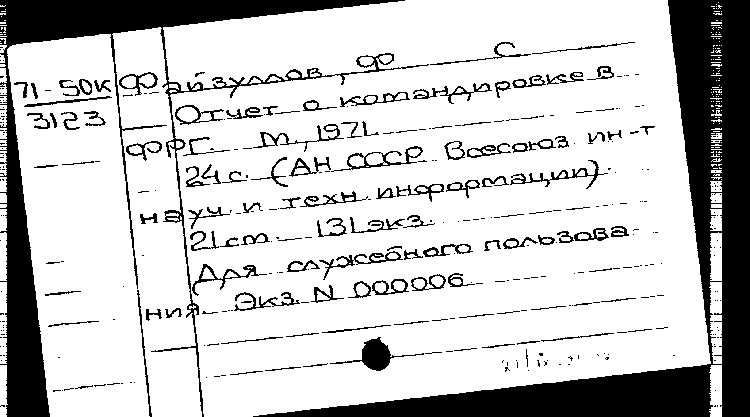 71-50к Файзуллов, Ф С
3123 Отчет о командировке в
ФРГ. М., 1971.
24с. (АН СССР Всесоюз ин-т
науч и техн информации).
21cm. 131экз.
Для служебного пользова-
ния. Экз. N 000006